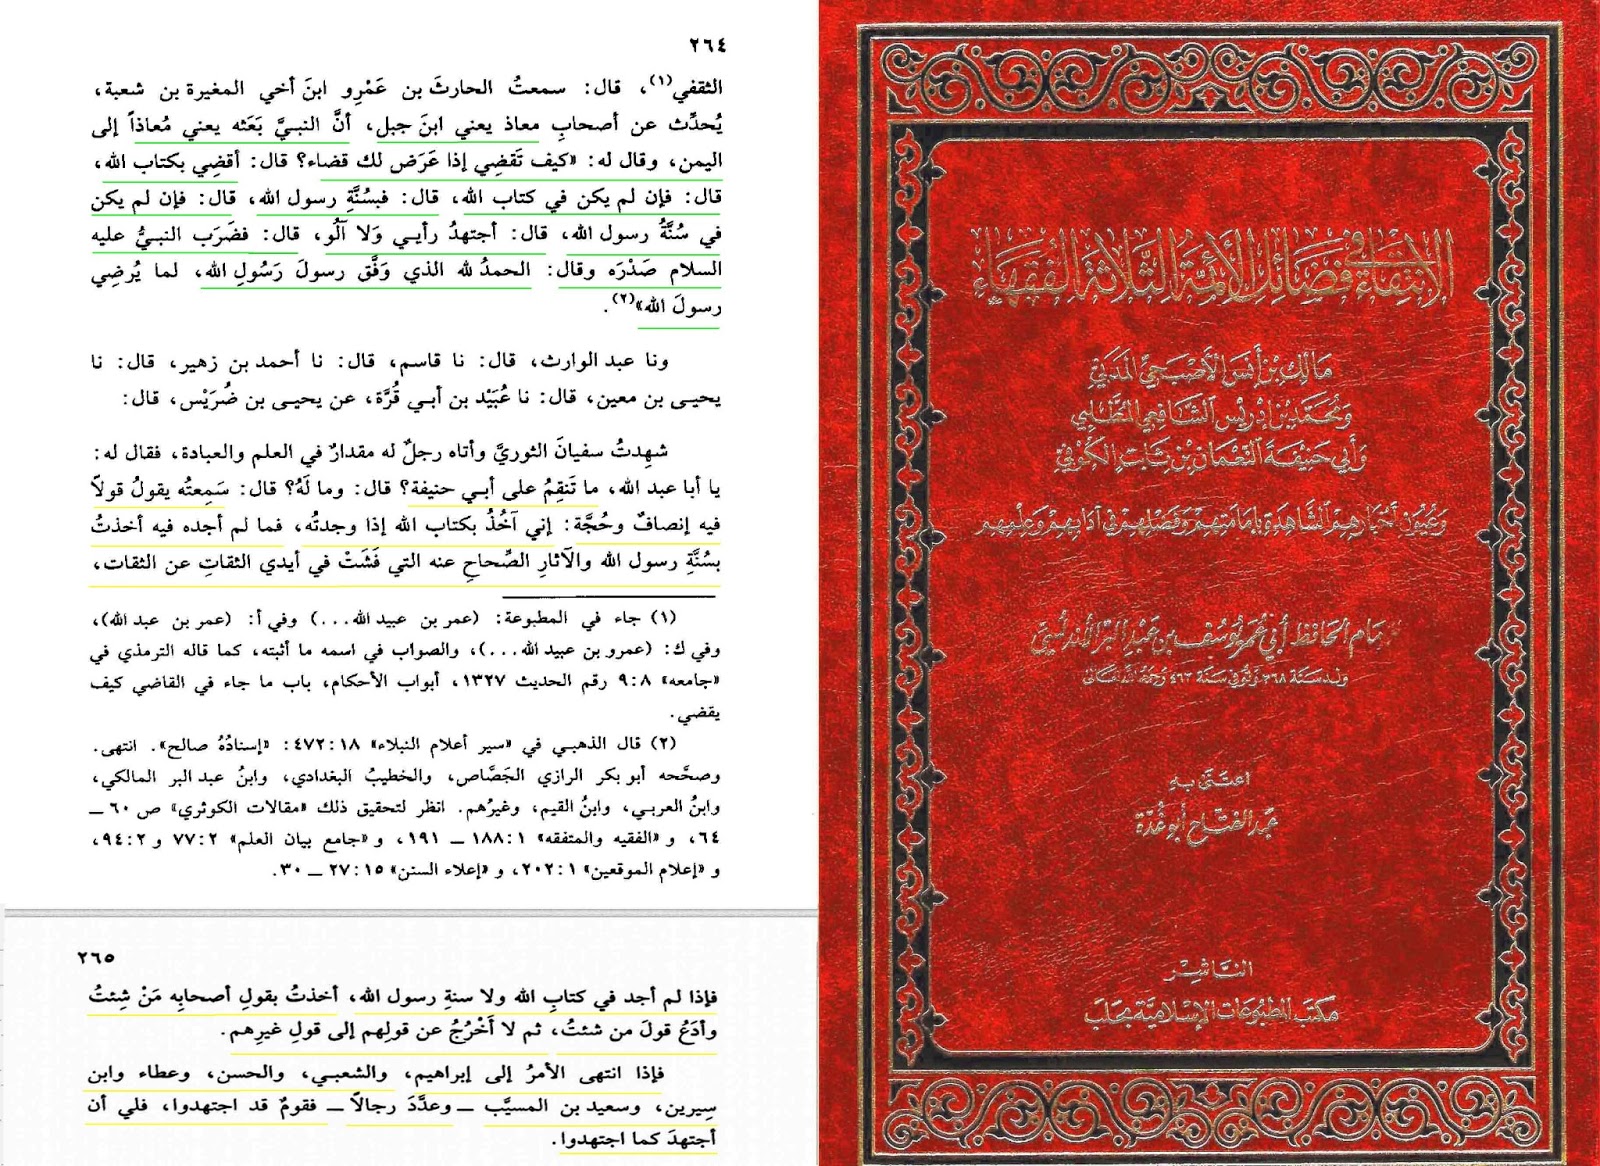 ٢٦٤
الثقفي(١)، قال: سمعتُ الحارثَ بن عَمْرِو ابنَ أخي المغيرة بن شعبة،
يُحدِّث عن أصحابِ معاذ يعني ابنَ جبل، أنَّ النبيَّ بَعَثه يعني مُعاذاً إلى
اليمن، وقال له: «كيف تَقضِي إذا عَرَض لك قضاء؟ قال: أقضِي بكتاب الله،
قال: فإن لم يكن في كتاب الله، قال: فبسُنَّةِ رسول الله، قال: فإن لم يكن
في سُنَّةُ رسول الله، قال: أجتهدُ رأيي وَلا آلُو، قال: فضَرَب النبيُّ عليه
السلام صَدْرَه وقال: الحمدُ لله الذي وَفَّق رسولَ رَسُولِ الله، لما يُرضِي
رسولَ الله»(٢).
ونا عبد الوارث، قال: نا قاسم، قال: نا أحمد بن زهير، قال: نا
يحيى بن معين، قال: نا عُبَيْد بن أبي قُرَّة، عن يحيى بن ضُرَيْس، قال:
شهِدتُ سفيانَ الثوريَّ وأتاه رجلٌ له مقدارٌ في العلم والعبادة، فقال له:
يا أبا عبد الله، ما تَنقِمُ على أبي حنيفة؟ قال: وما لَهُ؟ قال: سَمِعتُه يقولُ قولاً
فيه إنصافٌ وحُجَّة: إني آخُذُ بكتاب الله إذا وجدتُه، فما لم أجده فيه أخذتُ
بسُنَّةِ رسول الله والآثارِ الصِّحاحِ عنه التي فَشَتْ في أيدي الثقاتِ عن الثقات،
(١) جاء في المطبوعة: (عمر بن عبيد الله...) وفي أ: (عمر بن عبد الله)،
وفي ك: (عمرو بن عبيد الله...)، والصواب في اسمه ما أثبته، كما قاله الترمذي في
«جامعه» ٩:٨ رقم الحديث ١٣٢٧، أبواب الأحكام، باب ما جاء في القاضي كيف
يقضي.
(٢) قال الذهبي في «سير أعلام النبلاء» ٤٧٢:١٨: «إسنادُهُ صالح». انتهى.
وصحَّحه أبو بكر الرازي الجَصَّاص، والخطيبُ البغدادي، وابنُ عبد البر المالكي،
وابنُ العربي، وابنُ القيم، وغيرُهم. انظر لتحقيق ذلك «مقالات الكوثري» ص ٦٠ ــ
٦٤، و «الفقيه والمتفقه» ١٨٨:١ ــ ١٩١، و «جامع بيان العلم» ٧٧:٢ و ٩٤:٢،
و «إعلام الموقعين» ٢٠٢:١، و «إعلاء السنن» ٢٧:١٥ ــ ٣٠.
٢٦٥
فإذا لم أجد في كتابِ الله ولا سنةِ رسول الله، أخذتُ بقولِ أصحابِه مَنْ شِئتُ
وأدَعُ قولَ من شئتُ، ثم لا أَخْرُجُ عن قولِهم إلى قولِ غيرِهم.
فإذا انتهى الأمرُ إلى إبراهيم، والشعبي، والحسن، وعطاء وابن
سِيرين، وسعيد بن المسيَّب ــ وعدَّدَ رجالاً ــ فقومٌ قد اجتهدوا، فلي أن
أجتهدَ كما اجتهدوا.
الانتقاء في فضائل الأئمة الثلاثة الفقهاء
مالك بن أنس الأصبحي المدني
ومحمد بن إدريس الشافعي المطلبي
وأبي حنيفة النعمان بن ثابت الكوفي
وعيون أخبارهم الشاهدة بإمامتهم وفضلهم في آدابهم وعلمهم
مام الحافظ أبي عمر يوسف بن عبد البر الأندلسي
ولد سنة ٣٦٨ وتوفي سنة ٤٦٣ رحمه الله تعالى
اعتنى به
عبد الفتاح أبو غدة
الناشر
مكتب المطبوعات الإسلامية بحلب